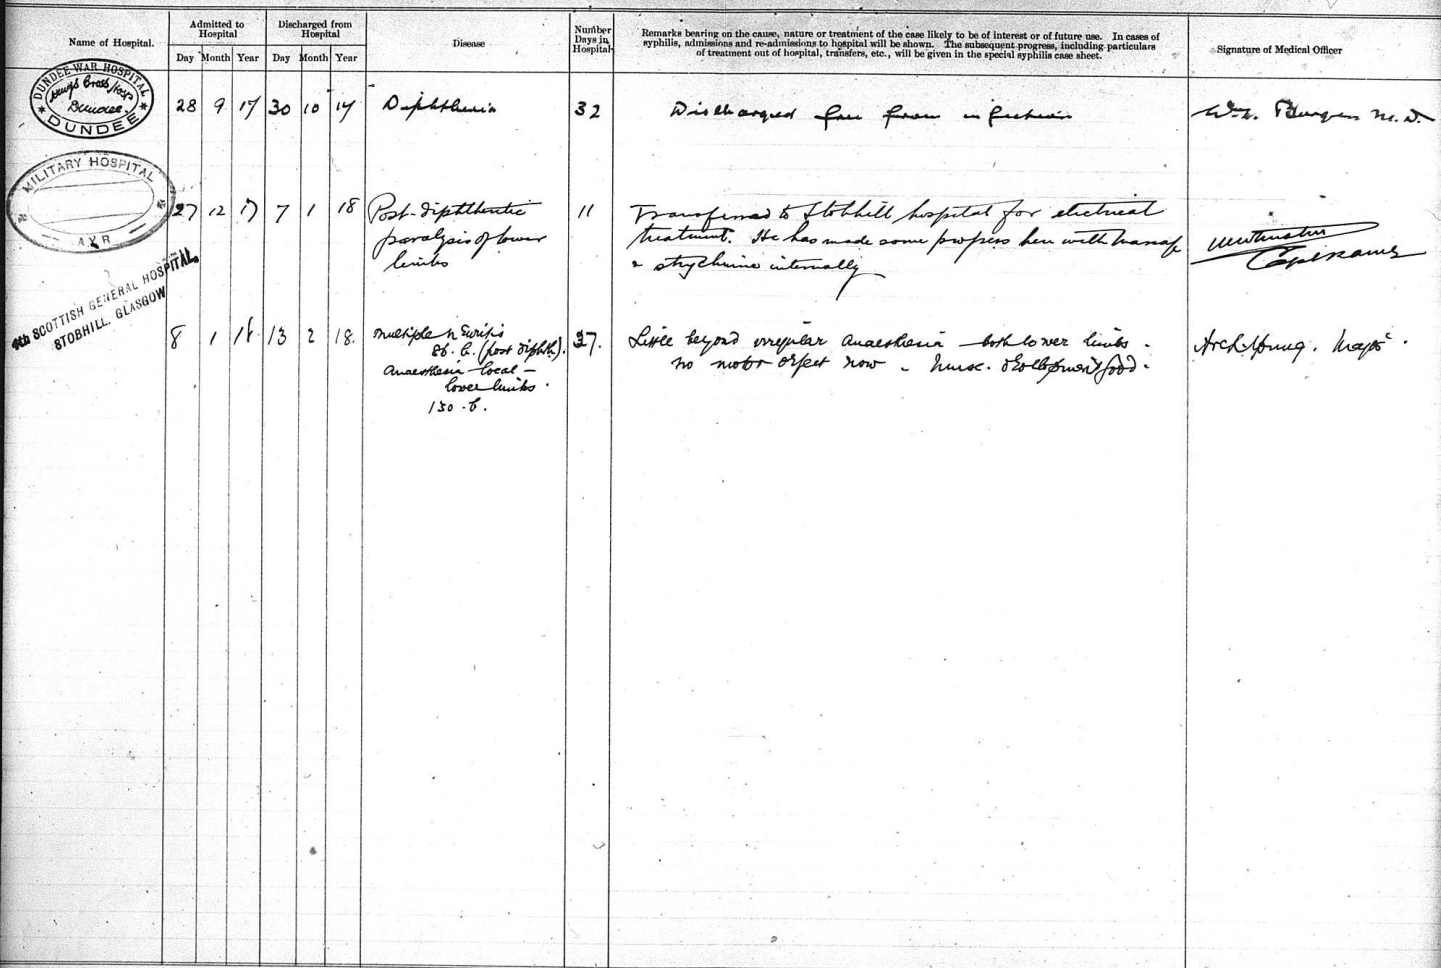 Name of Hospital.
Admitted to
Hospital
Day Month Year
Discharged from
Hospital
Day Month Year
Disease
Number
Days in
Hospital
Remarks bearing on the cause, nature or treatment of the case likely to be of interest or of future use. In cases of
syphilis, admissions and re-admissions to hospital will be shown. The subsequent progress, including particulars
of treatment out of hospital, transfers, etc., will be given in the special syphilis case sheet.
Signature of Medical Officer
DUNDEE WAR HOSPITAL
Kings Cross Hosp
Dundee.
DUNDEE
28 9 17 30 10 17 Diphtheria 32 Discharged free from infection Wm. Burgess M.D.
MILITARY HOSPITAL
AYR
27 12 17 7 1 18 Post-diphtheritic 11 Transferred to Stobhill hospital for electrical
paralysis of lower treatment. He has made some progress here with massage
limbs & strychnine internally
Capt RAMC
4th SCOTTISH GENERAL HOSPITAL,
STOBHILL, GLASGOW
8 1 18 13 2 18. Multiple Neuritis 37. Little beyond irregular anaesthesia - both lower limbs -
86. b. (post diphth). no motor defect now - Musc. development good.
Anaesthesia - local -
lower limbs.
130. b.
Arch Young. Major